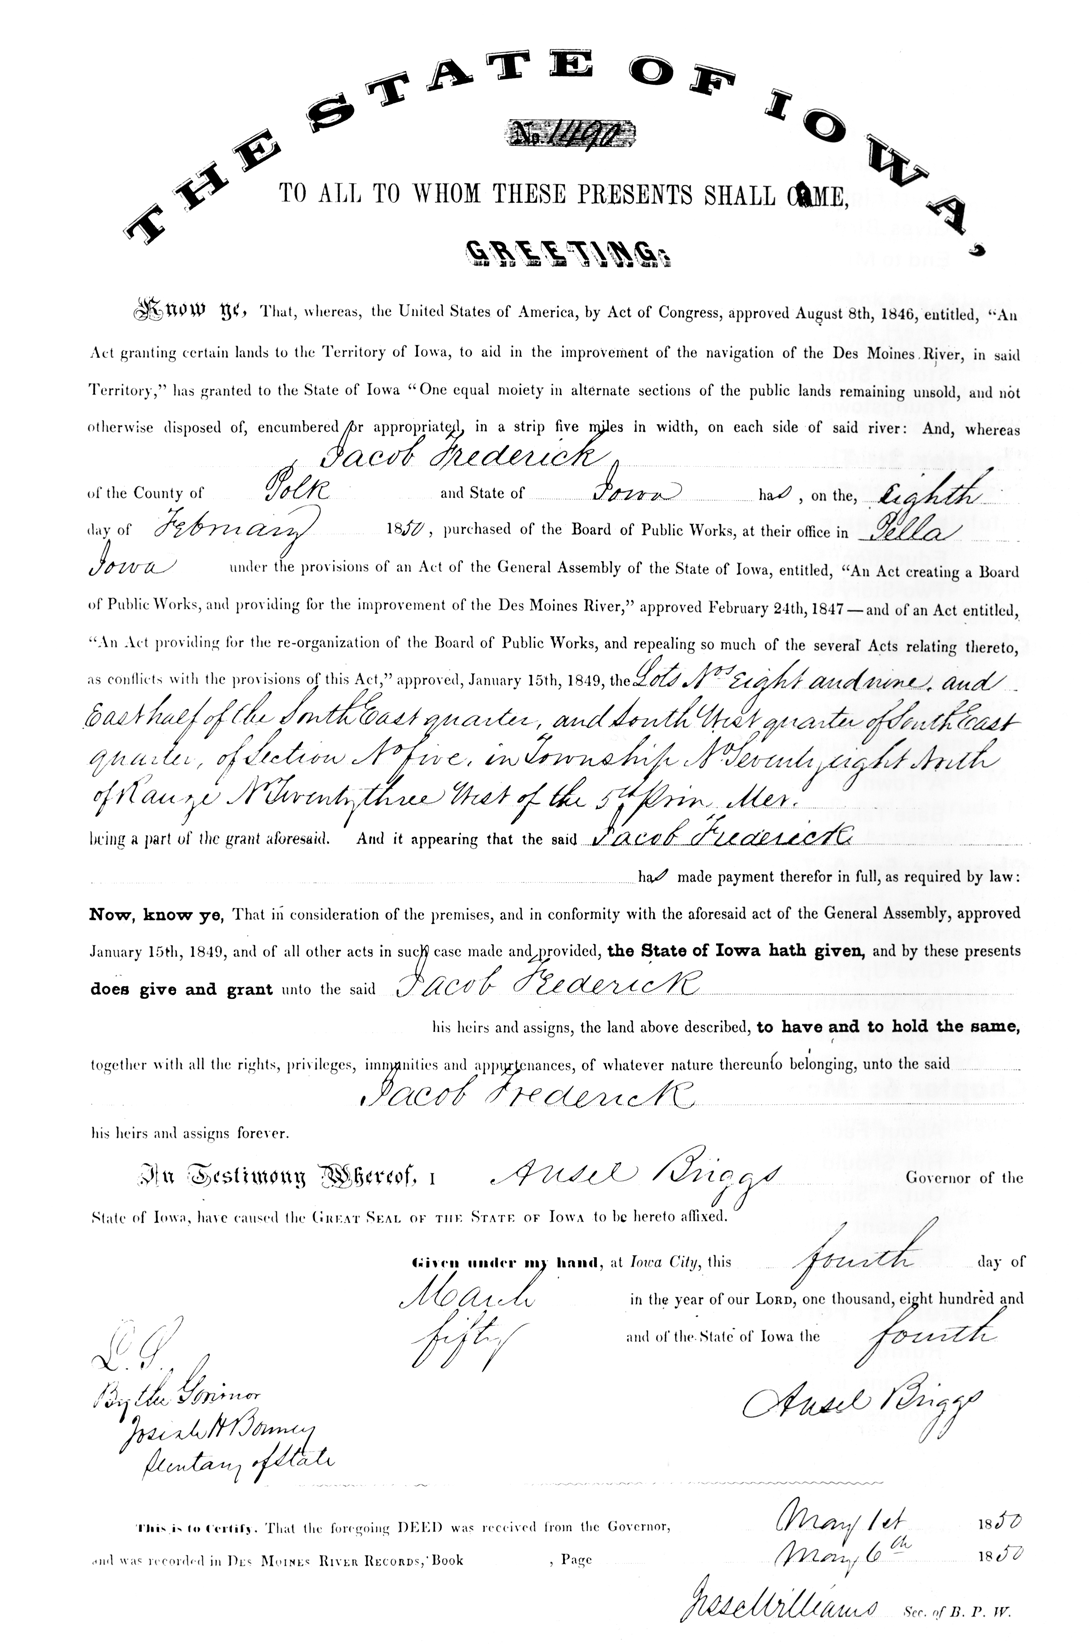 THE STATE OF IOWA,
No. 1490
TO ALL TO WHOM THESE PRESENTS SHALL COME,
GREETING:
Know ye, That, whereas, the United States of America, by Act of Congress, approved August 8th, 1846, entitled, “An
Act granting certain lands to the Territory of Iowa, to aid in the improvement of the navigation of the Des Moines River, in said
Territory,” has granted to the State of Iowa “One equal moiety in alternate sections of the public lands remaining unsold, and not
otherwise disposed of, encumbered or appropriated, in a strip five miles in width, on each side of said river: And, whereas
Jacob Frederick
of the County of Polk and State of Iowa has, on the, eighth
day of February 1850, purchased of the Board of Public Works, at their office in Pella
Iowa under the provisions of an Act of the General Assembly of the State of Iowa, entitled, “An Act creating a Board
of Public Works, and providing for the improvement of the Des Moines River,” approved February 24th, 1847—and of an Act entitled,
“An Act providing for the re-organization of the Board of Public Works, and repealing so much of the several Acts relating thereto,
as conflicts with the provisions of this Act,” approved, January 15th, 1849, the Lots Nos Eight and nine, and
East half of the South East quarter, and South West quarter of South East
quarter, of Section No five, in Township No Seventy eight North
of Range No Twenty three West of the 5th Prin. Mer.
being a part of the grant aforesaid. And it appearing that the said Jacob Frederick
has made payment therefor in full, as required by law:
Now, know ye, That in consideration of the premises, and in conformity with the aforesaid act of the General Assembly, approved
January 15th, 1849, and of all other acts in such case made and provided, the State of Iowa hath given, and by these presents
does give and grant unto the said Jacob Frederick
his heirs and assigns, the land above described, to have and to hold the same,
together with all the rights, privileges, immunities and appurtenances, of whatever nature thereunto belonging, unto the said
Jacob Frederick
his heirs and assigns forever.
In Testimony Whereof, I Ansel Briggs Governor of the
State of Iowa, have caused the GREAT SEAL OF THE STATE OF IOWA to be hereto affixed.
Given under my hand, at Iowa City, this fourth day of
March in the year of our LORD, one thousand, eight hundred and
fifty and of the State of Iowa the fourth
L. S.
By the Govirnor Ansel Briggs
Josiah H Bonney
Secretary of State
This is to Certify, That the foregoing DEED was received from the Governor, May 1st 1850
and was recorded in DES MOINES RIVER RECORDS, Book , Page May 6th 1850
Jesse Williams Sec. of B. P. W.